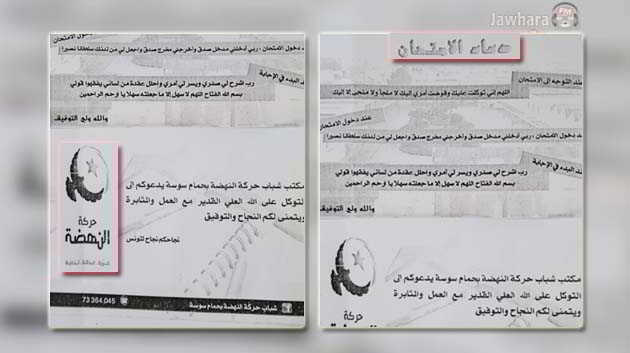 Jawhara FM
عند دخول الامتحان
ربي أدخلني مدخل صدق وأخرجني مخرج صدق واجعل لي من لدنك سلطانا نصيرا
عند البدء في الإجابة
رب اشرح لي صدري ويسر لي أمري واحلل عقدة من لساني يفقهوا قولي
بسم الله الفتاح اللهم لا سهل إلا ما جعلته سهلا يا أرحم الراحمين
والله ولي التوفيق
مكتب شباب حركة النهضة بحمام سوسة يدعوكم إلى
التوكل على الله العلي القدير مع العمل والمثابرة
ويتمنى لكم النجاح والتوفيق
نجاحكم نجاح لتونس
حركة
النهضة
شباب حركة النهضة بحمام سوسة
73 364,045
دعاء الامتحان
عند التوجه إلى الامتحان
اللهم إني توكلت عليك وفوضت أمري إليك لا ملجأ ولا منجى إلا إليك
عند دخول الامتحان
ربي أدخلني مدخل صدق وأخرجني مخرج صدق واجعل لي من لدنك سلطانا نصيرا
عند البدء في الإجابة
رب اشرح لي صدري ويسر لي أمري واحلل عقدة من لساني يفقهوا قولي
بسم الله الفتاح اللهم لا سهل إلا ما جعلته سهلا يا أرحم الراحمين
والله ولي التوفيق
مكتب شباب حركة النهضة بحمام سوسة يدعوكم إلى
التوكل على الله العلي القدير مع العمل والمثابرة
ويتمنى لكم النجاح والتوفيق
حركة
النهضة